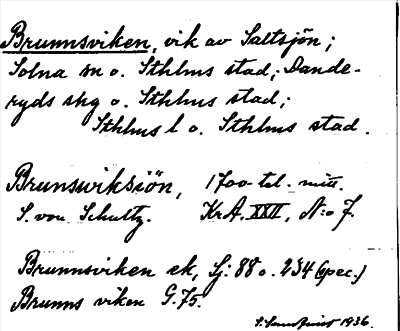 Brunnsviken, vik av Saltsjön;
Solna sn o. Sthlms stad; Dande-
ryds skg o. Sthlms stad;
Sthlms l o. Sthlms stad.
Brunswiksiön, 1700-tal. mitt.
S. von Schultz. KrA. XXII, N:o 7.
Brunnsviken ek, Sj: 88 o. 234 (spec.)
Brunns viken G. 75.
1936.